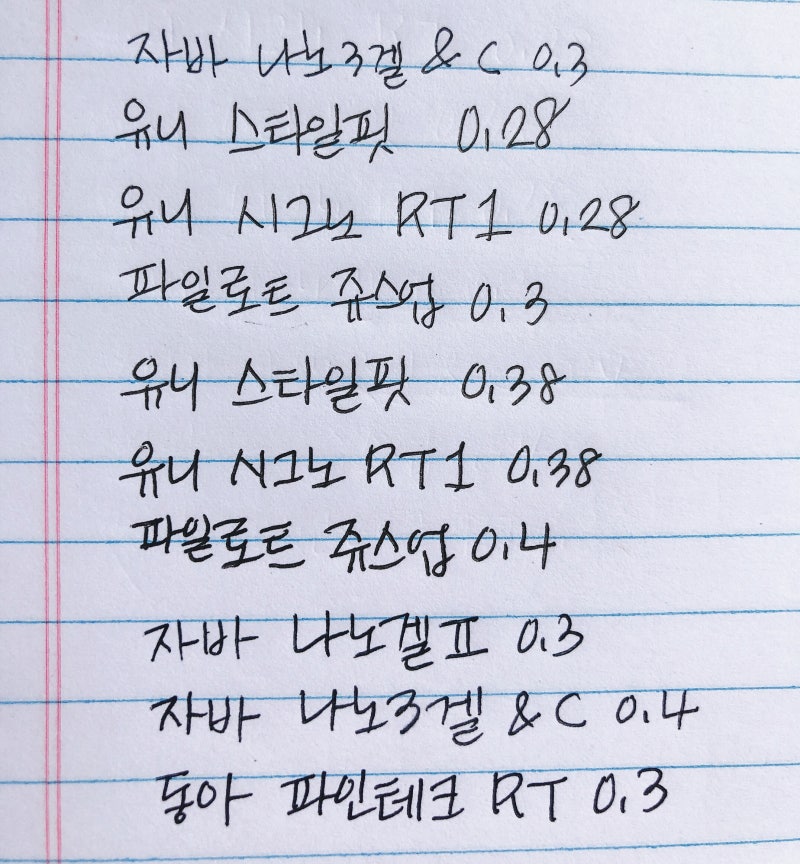 자바 나노3겔 & C 0.3
유니 스타일핏 0.28
유니 시그노 RT1 0.28
파일로트 쥬스업 0.3
유니 스타일핏 0.38
유니 시그노 RT1 0.38
파일로트 쥬스업 0.4
자바 나노겔Ⅱ 0.3
자바 나노3겔 & C 0.4
동아 파인테크 RT 0.3